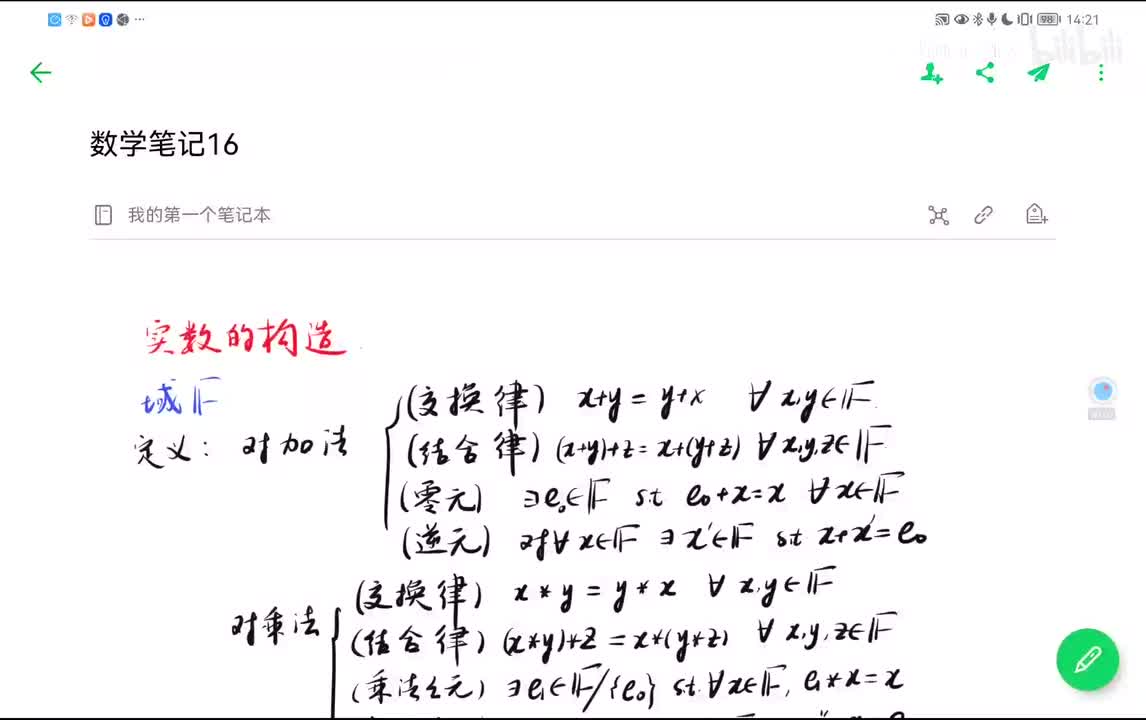 98 14:21
bilibili
数学笔记16
我的第一个笔记本
实数的构造
域F
定义: 对加法
(交换律) x+y = y+x ∀x,y∈F.
(结合律) (x+y)+z = x+(y+z) ∀x,y,z∈F
(零元) ∃e₀∈F st e₀+x=x ∀x∈F
(逆元) 对∀x∈F ∃x'∈F st x+x'=e₀
对乘法
(交换律) x*y = y*x ∀x,y∈F
(结合律) (x*y)*z = x*(y*z) ∀x,y,z∈F
(乘法幺元) ∃e₁∈F/{e₀} st. ∀x∈F, e₁*x=x